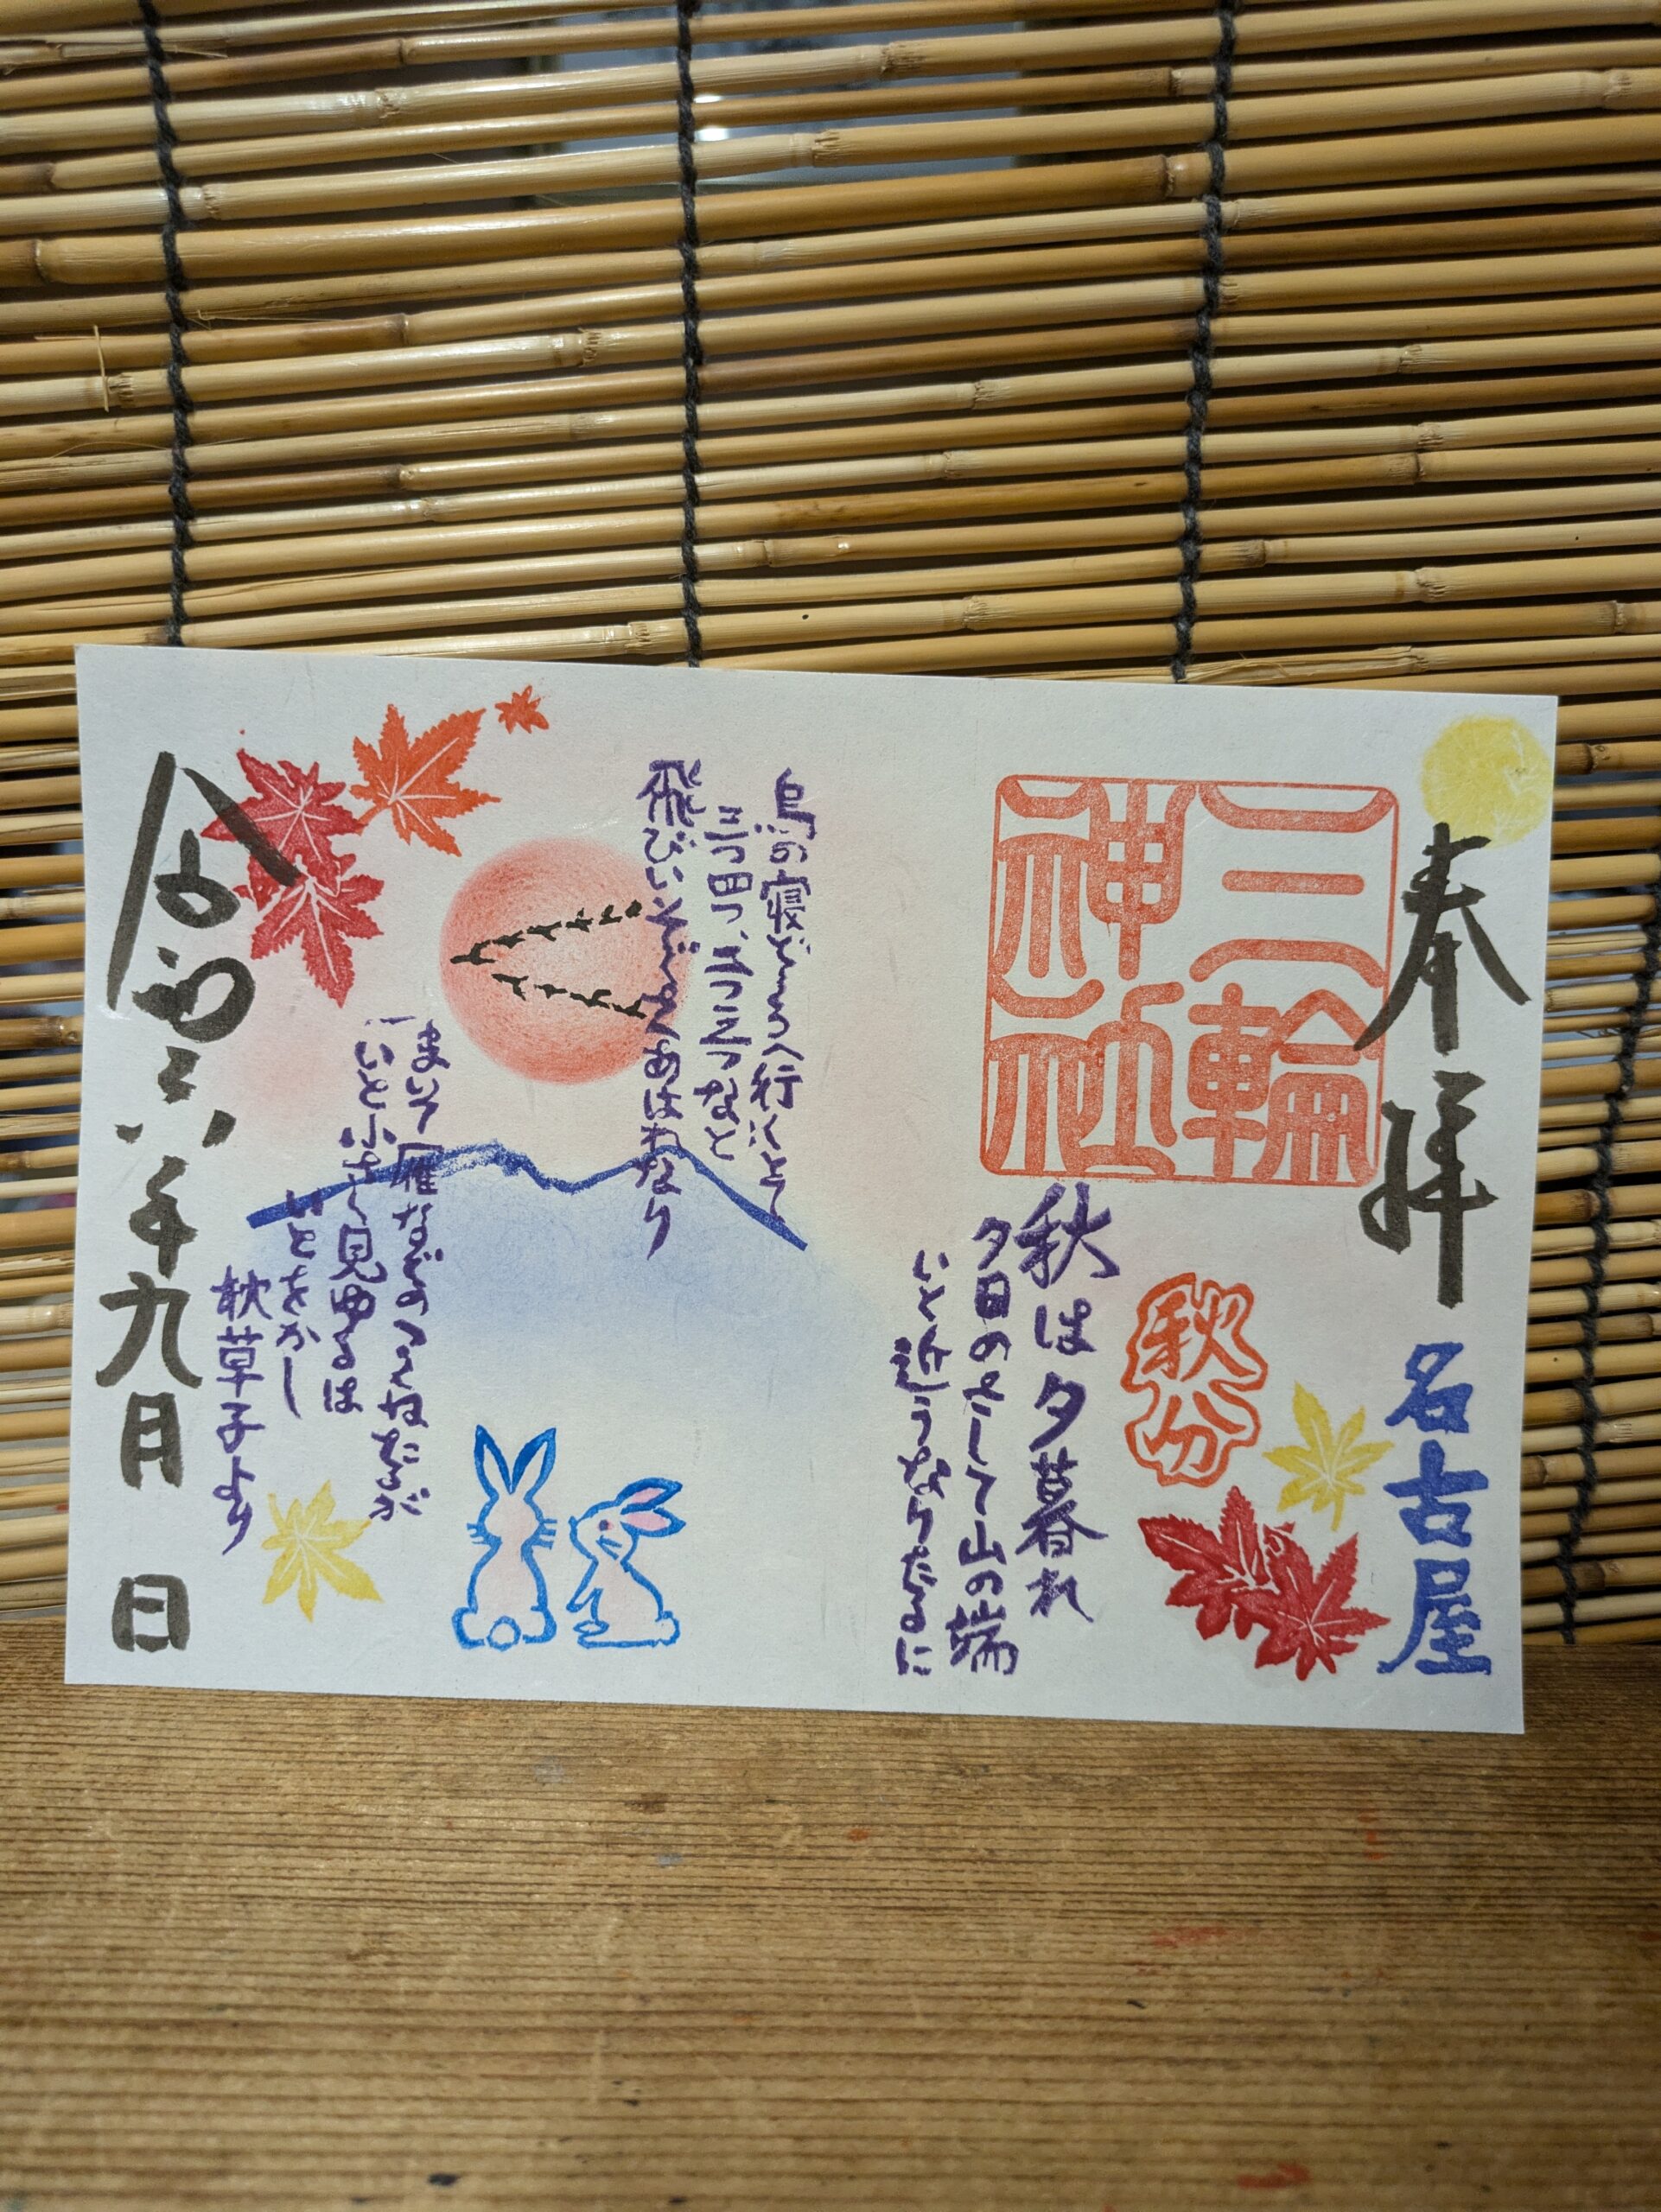 奉拝
名古屋
三輪
神社
秋分
秋は夕暮れ
夕日のさして山の端
いと近うなりたるに
烏の寝どころへ行くとて
三つ四つ、二つ三つなど
飛びいそぐさへあはれなり
まいて雁などのつらねたるが
いと小さく見ゆるは
いとをかし
枕草子より
令和六年九月 日